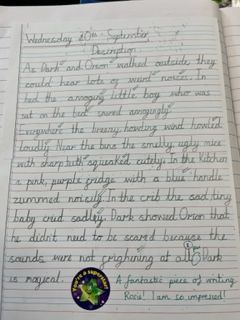 Wednesday 20th September
Description
As Dark and Orion walked outside, they
could hear lots of weird noises. In
bed the annoying little boy who was
sat on the bed snored annoyingly.
Everywhere the breezy, howling wind howled
loudly. Near the bins the smelly, ugly mice
with sharp teeth squeaked cutely. In the kitchen
a pink, purple fridge with a blue handle
zummed noisily. In the creb the sad, tiny
baby cried sadley. Dark showed Orion that
he didnt need to be scared because the
sounds were not frightning at all. Dark
is magical.
You're a superstar!
A fantastic piece of writing
Rosie! I am so impressed!